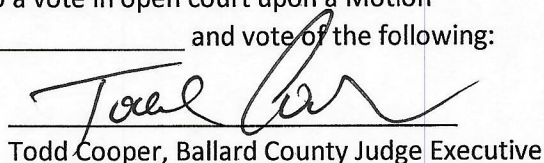 a vote in open court upon a Motion
and vote of the following:
Todd Cooper
Todd Cooper, Ballard County Judge Executive